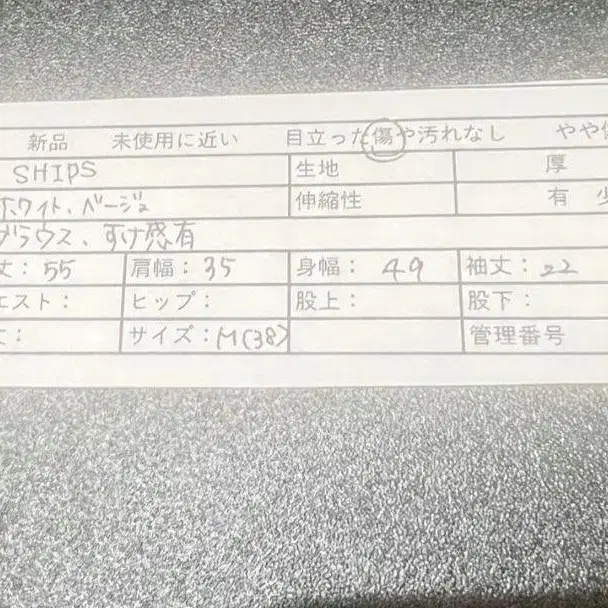 新品 未使用に近い 目立った傷や汚れなし やや
SHIPS 生地 厚
ホワイト、ベージュ 伸縮性 有 少
ブラウス、すけ感有
丈：55 肩幅：35 身幅：49 袖丈：22
エスト： ヒップ： 股上： 股下：
丈： サイズ：M(38) 管理番号